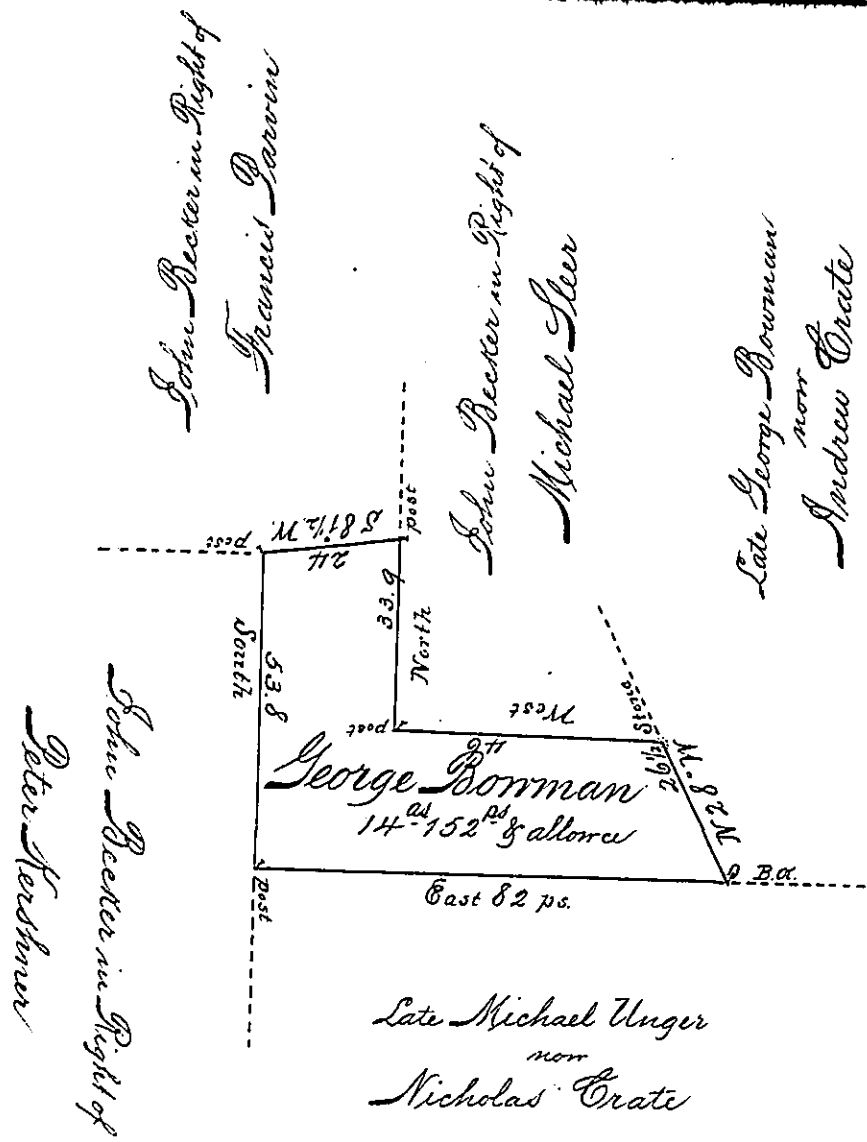 John Becker in Right of
Francis Parvin
John Becker in Right of
Michael Sleer
Late George Bowman
now
Andrew Crate
post
S 81½ W.
24
post
33.9
North
South
53.8
post
West
46
Stone
26½
N 28 W
George Bowman
14 as 152 ps & allowce
post
East 82 ps.
B.O.
John Becker in Right of
Peter Kershner
Late Michael Unger
now
Nicholas Crate